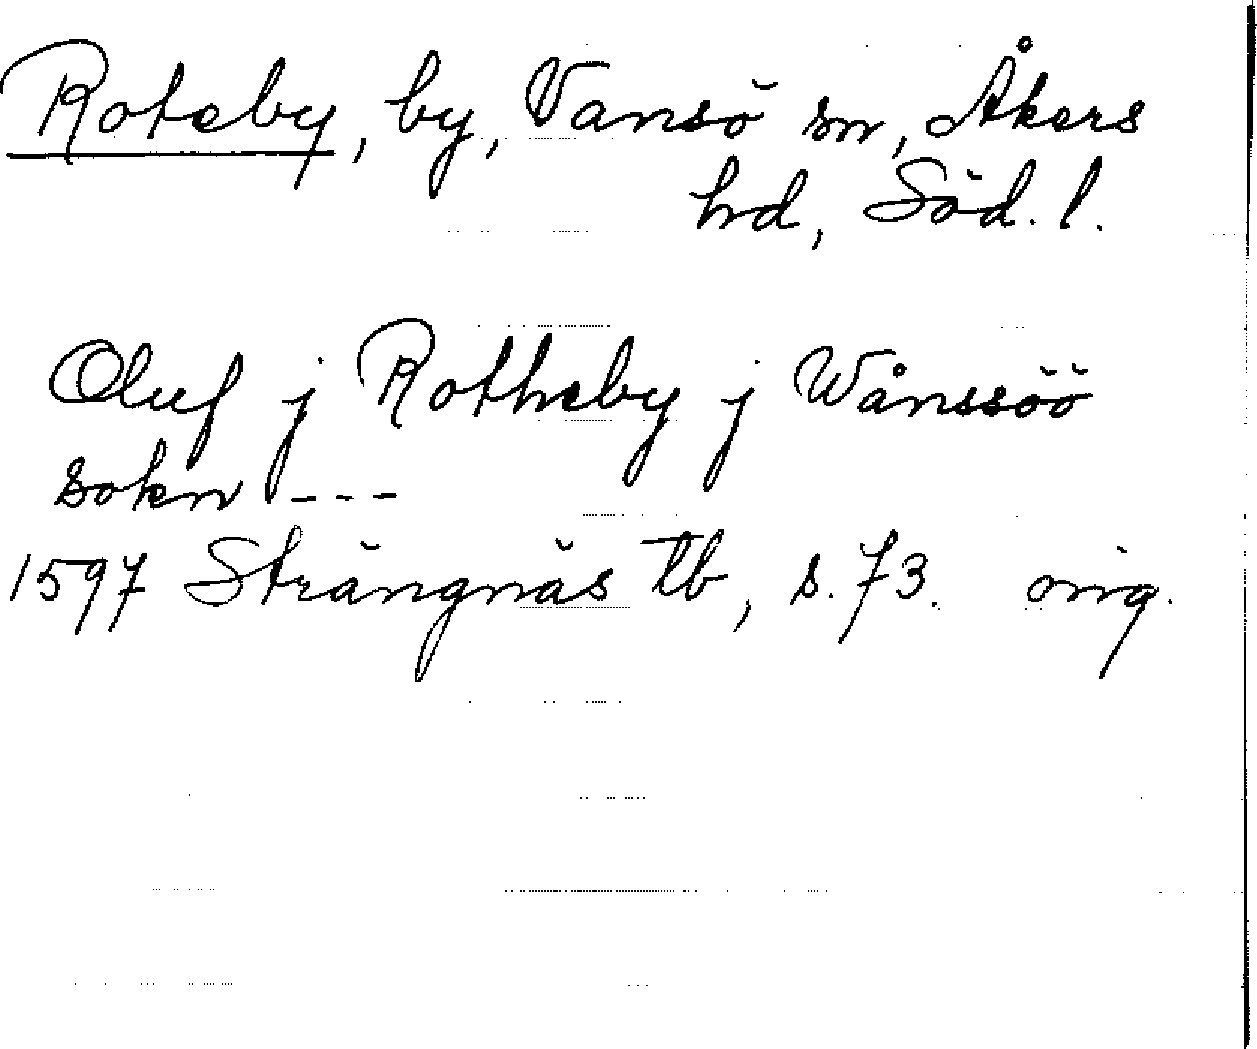 Roteby, by, Vansö sn, Åkers
hd, Söd. l.
Oluf j Rotheby j Wånssöö
sokn ---
1597 Strängnäs tb, s. 73. orig.